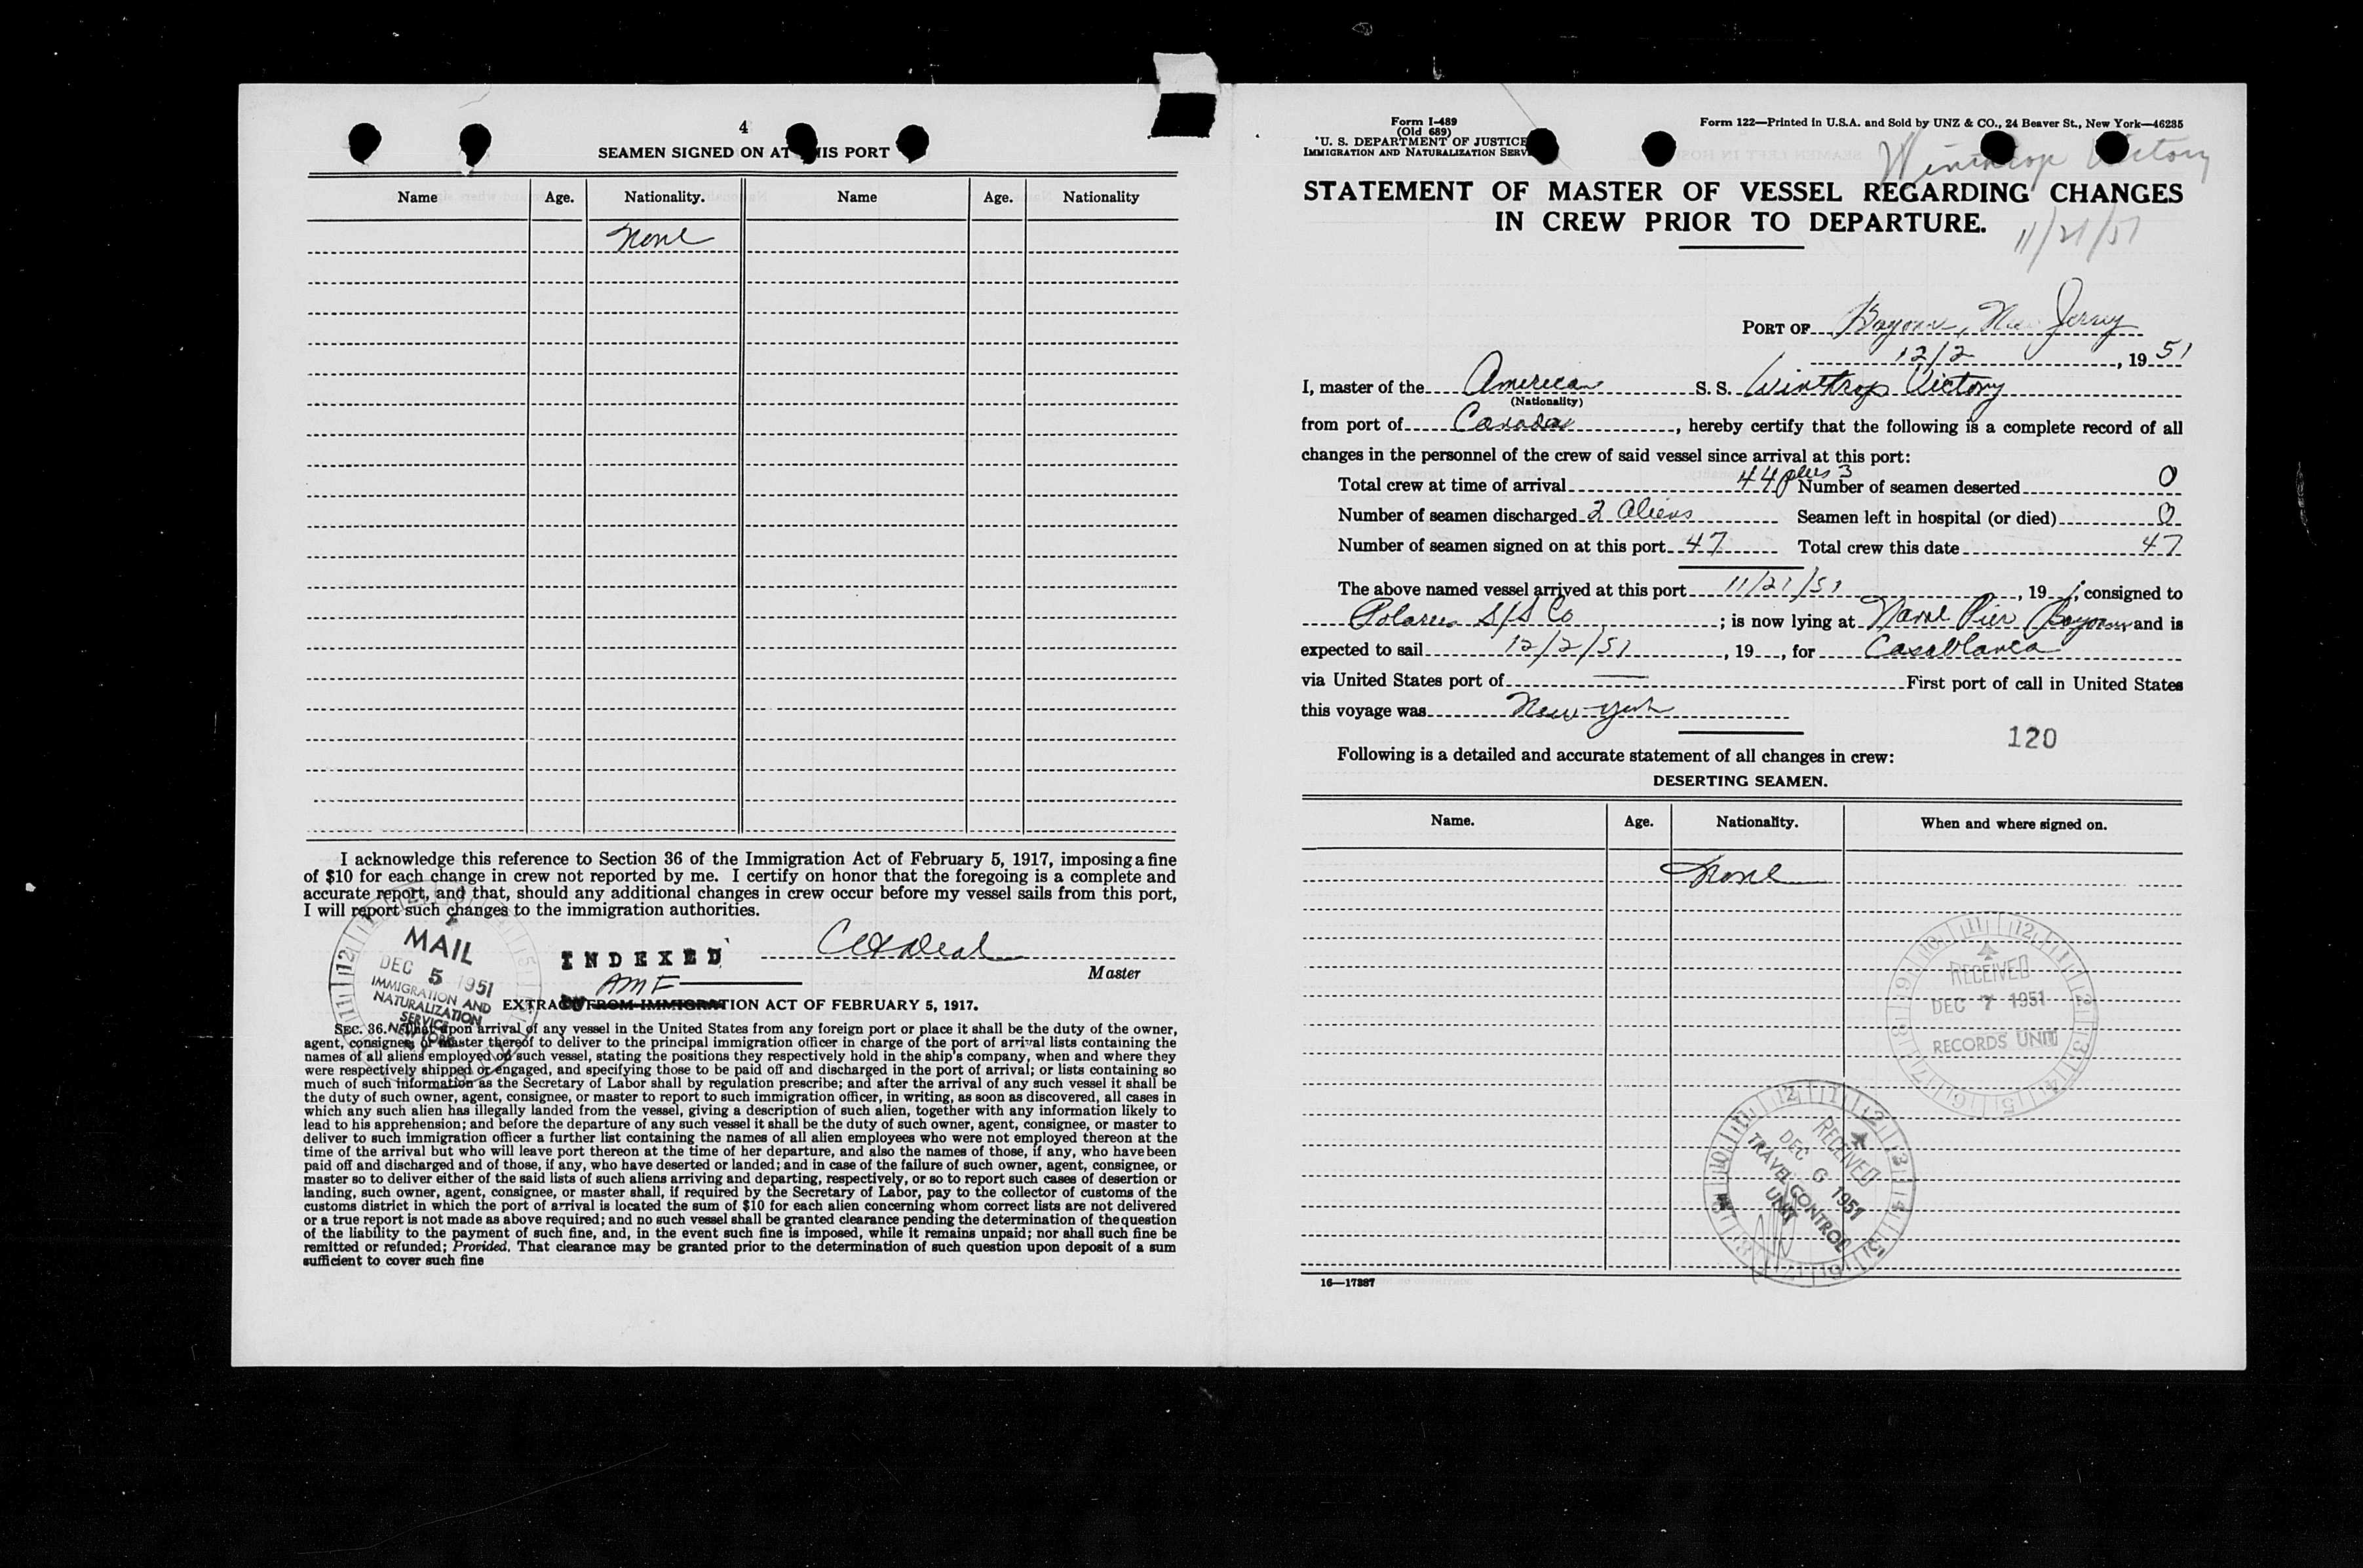 4
SEAMEN SIGNED ON AT THIS PORT
Name Age. Nationality. Name Age. Nationality
None
I acknowledge this reference to Section 36 of the Immigration Act of February 5, 1917, imposing a fine
of $10 for each change in crew not reported by me. I certify on honor that the foregoing is a complete and
accurate report, and that, should any additional changes in crew occur before my vessel sails from this port,
I will report such changes to the immigration authorities.
MAIL
DEC 5 1951
IMMIGRATION AND
NATURALIZATION
SERVICE
NEW YORK
INDEXED
AMF
Master
EXTRACT FROM IMMIGRATION ACT OF FEBRUARY 5, 1917.
SEC. 36. That upon arrival of any vessel in the United States from any foreign port or place it shall be the duty of the owner,
agent, consignee, or master thereof to deliver to the principal immigration officer in charge of the port of arrival lists containing the
names of all aliens employed on such vessel, stating the positions they respectively hold in the ship's company, when and where they
were respectively shipped or engaged, and specifying those to be paid off and discharged in the port of arrival; or lists containing so
much of such information as the Secretary of Labor shall by regulation prescribe; and after the arrival of any such vessel it shall be
the duty of such owner, agent, consignee, or master to report to such immigration officer, in writing, as soon as discovered, all cases in
which any such alien has illegally landed from the vessel, giving a description of such alien, together with any information likely to
lead to his apprehension; and before the departure of any such vessel it shall be the duty of such owner, agent, consignee, or master to
deliver to such immigration officer a further list containing the names of all alien employees who were not employed thereon at the
time of the arrival but who will leave port thereon at the time of her departure, and also the names of those, if any, who have been
paid off and discharged and of those, if any, who have deserted or landed; and in case of the failure of such owner, agent, consignee, or
master so to deliver either of the said lists of such aliens arriving and departing, respectively, or so to report such cases of desertion or
landing, such owner, agent, consignee, or master shall, if required by the Secretary of Labor, pay to the collector of customs of the
customs district in which the port of arrival is located the sum of $10 for each alien concerning whom correct lists are not delivered
or a true report is not made as above required; and no such vessel shall be granted clearance pending the determination of the question
of the liability to the payment of such fine, and, in the event such fine is imposed, while it remains unpaid; nor shall such fine be
remitted or refunded; Provided, That clearance may be granted prior to the determination of such question upon deposit of a sum
sufficient to cover such fine
Form I-489
(Old 689)
U. S. DEPARTMENT OF JUSTICE
IMMIGRATION AND NATURALIZATION SERV
Form 122—Printed in U.S.A. and Sold by UNZ & CO., 24 Beaver St., New York—46235
Winthrop Victory
STATEMENT OF MASTER OF VESSEL REGARDING CHANGES
IN CREW PRIOR TO DEPARTURE.
11/21/51
PORT OF Bayonne, New Jersey
12/2, 1951
I, master of the American S. S. Winthrop Victory
(Nationality)
from port of Canada, hereby certify that the following is a complete record of all
changes in the personnel of the crew of said vessel since arrival at this port:
Total crew at time of arrival 44 plus 3 Number of seamen deserted 0
Number of seamen discharged 2 Aliens Seamen left in hospital (or died) 0
Number of seamen signed on at this port 47 Total crew this date 47
The above named vessel arrived at this port 11/21/51, 19, consigned to
Polarus S/S Co; is now lying at Naval Pier Bayonne and is
expected to sail 12/2/51, 19, for Casablanca
via United States port of — First port of call in United States
this voyage was New York
120
Following is a detailed and accurate statement of all changes in crew:
DESERTING SEAMEN.
Name. Age. Nationality. When and where signed on.
None
RECEIVED
DEC 7 1951
RECORDS UNIT
RECEIVED
DEC 6 1951
TRAVEL CONTROL
UNIT
16—17387